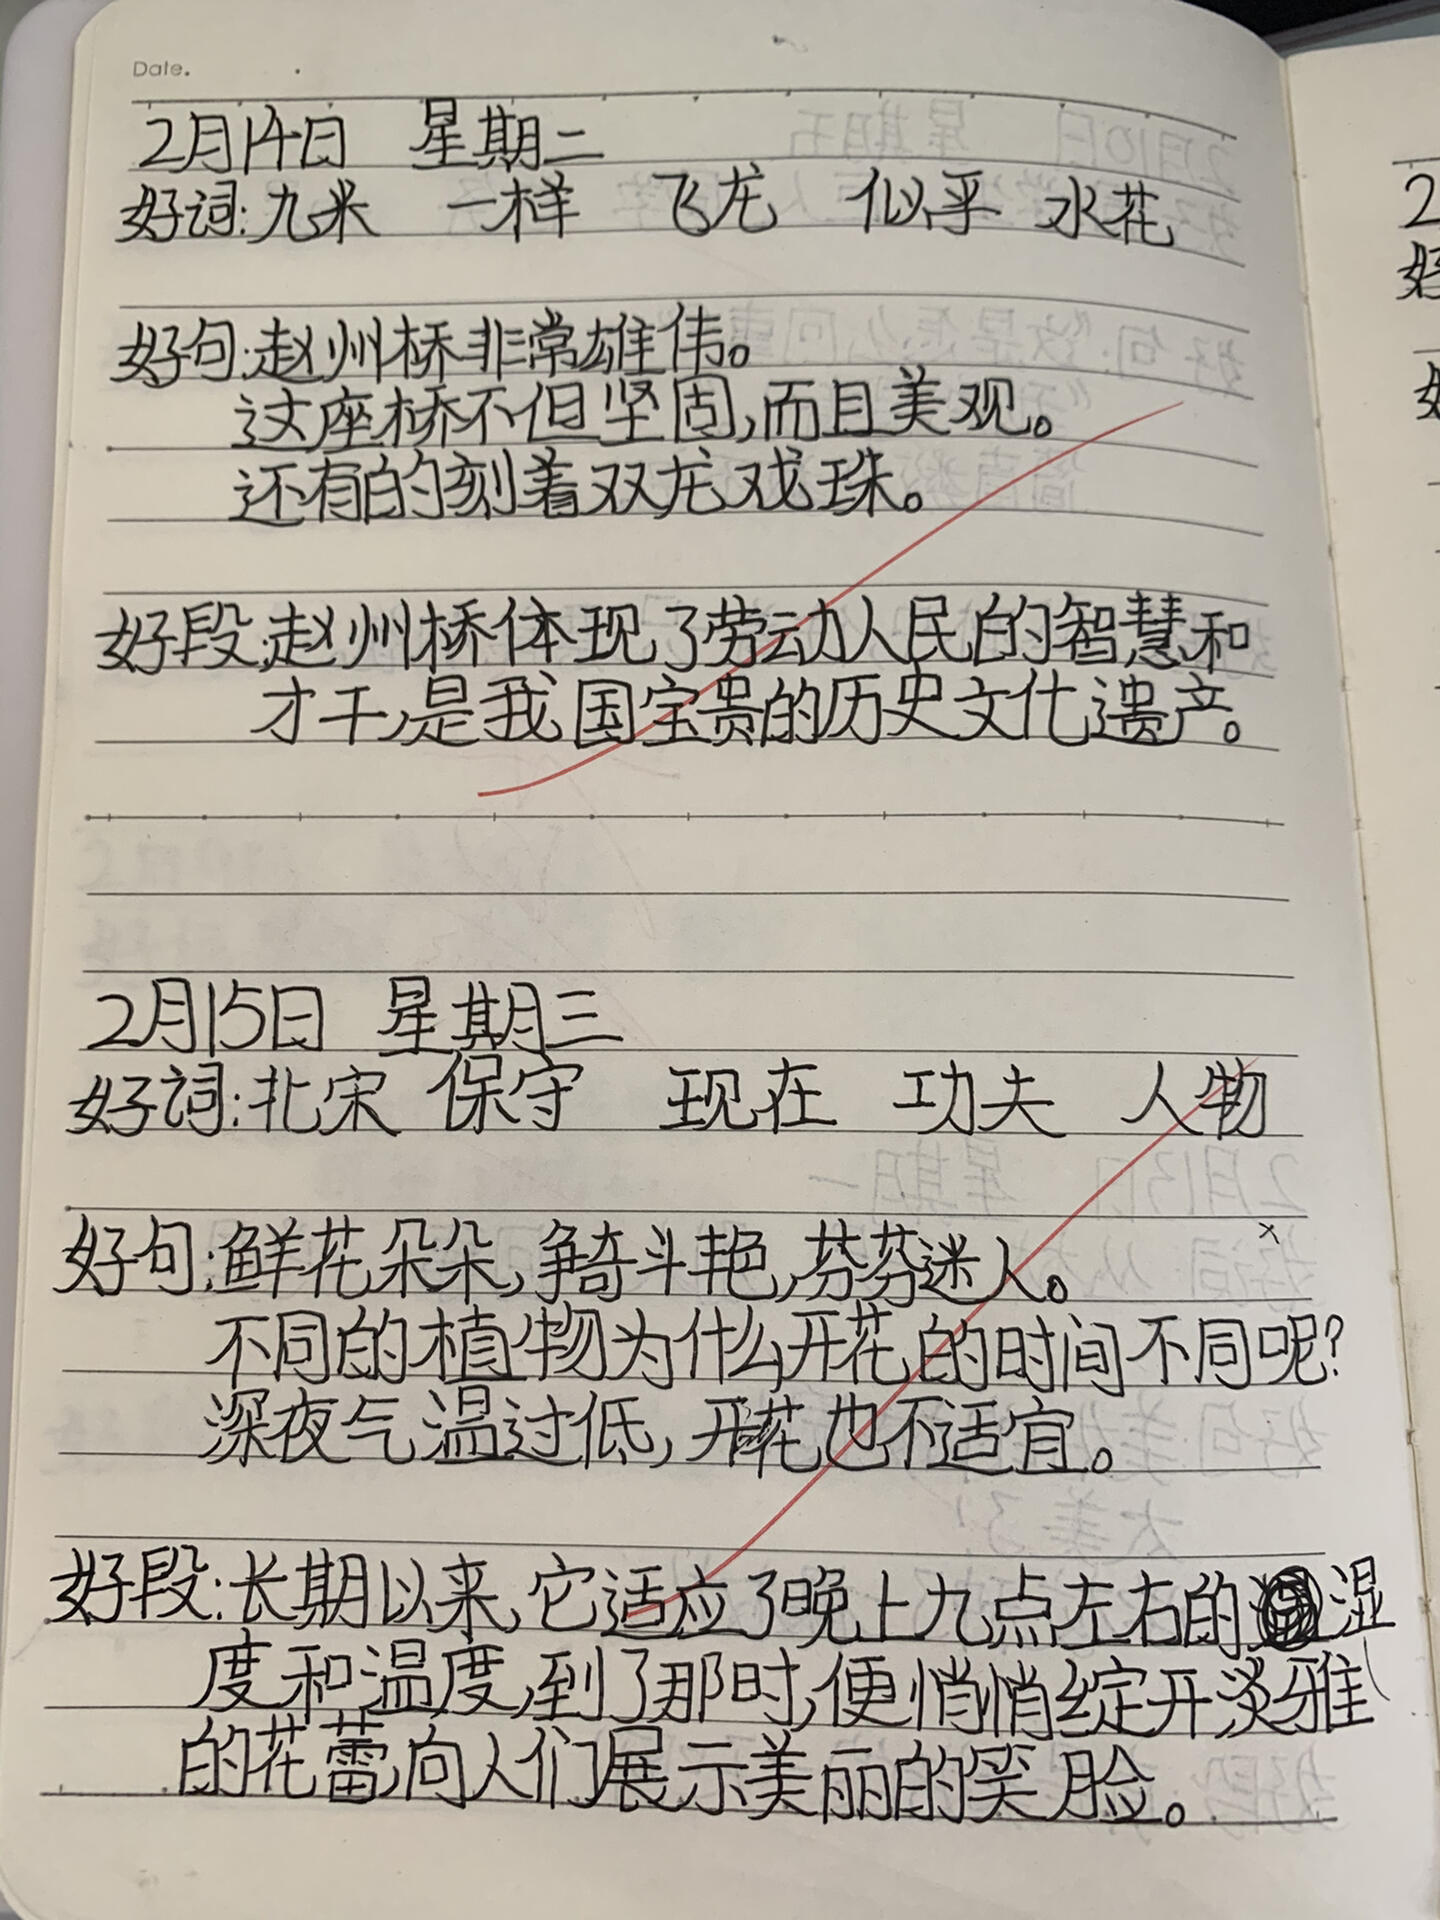 Date.
2月14日 星期二
好词:九米 一样 飞龙 似乎 水花
好句:赵州桥非常雄伟。
这座桥不但坚固,而且美观。
还有的刻着双龙戏珠。
好段:赵州桥体现了劳动人民的智慧和
才干,是我国宝贵的历史文化遗产。
2月15日 星期三
好词:北宋 保守 现在 功夫 人物
好句:鲜花朵朵,争奇斗艳,芬芬迷人。
不同的植物为什么开花的时间不同呢?
深夜气温过低,开花也不适宜。
好段:长期以来,它适应了晚上九点左右的湿
度和温度,到了那时,便悄悄绽开淡雅
的花蕾,向人们展示美丽的笑脸。
2
好